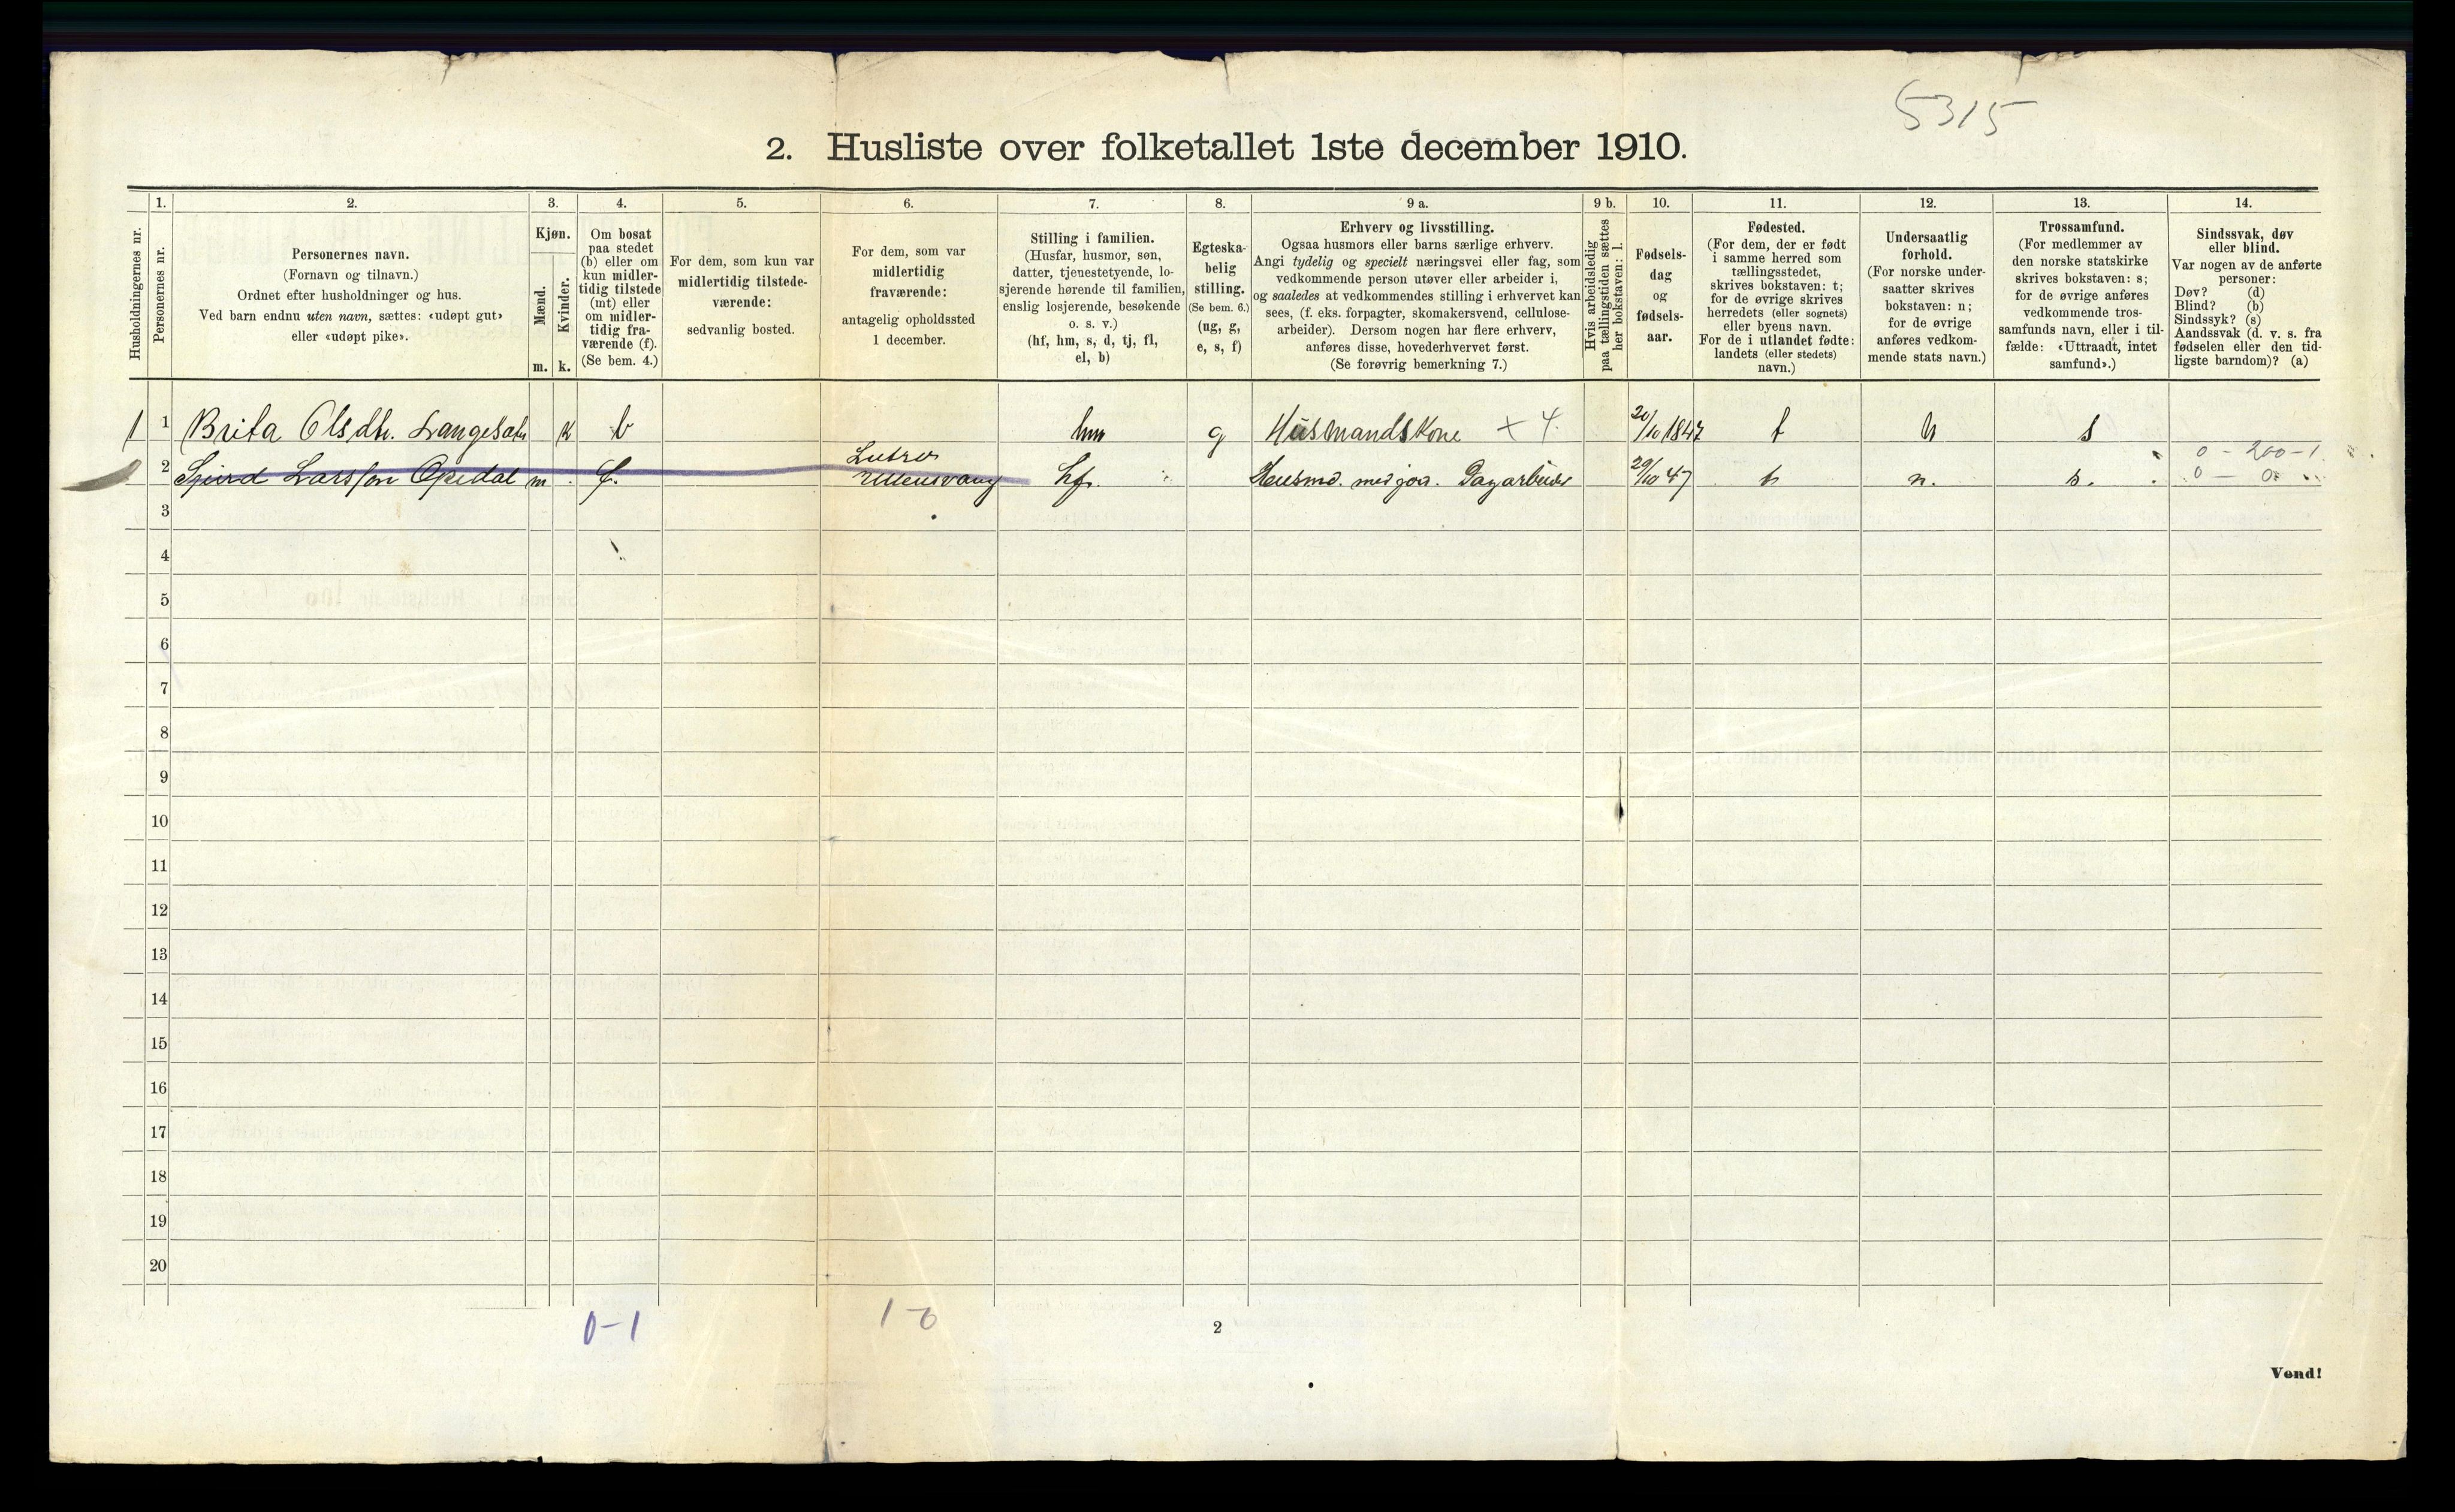 5315
2. Husliste over folketallet 1ste december 1910.
Husholdningernes nr.
1.
Personernes nr.
2.
Personernes navn.
(Fornavn og tilnavn.)
Ordnet efter husholdninger og hus.
Ved barn endnu uten navn, sættes: «udøpt gut»
eller «udøpt pike».
3.
Kjøn.
Mænd.
Kvinder.
m. k.
4.
Om bosat
paa stedet
(b) eller om
kun midler-
tidig tilstede
(mt) eller
om midler-
tidig fra-
værende (f).
(Se bem. 4.)
5.
For dem, som kun var
midlertidig tilstede-
værende:
sedvanlig bosted.
6.
For dem, som var
midlertidig
fraværende:
antagelig opholdssted
1 december.
7.
Stilling i familien.
(Husfar, husmor, søn,
datter, tjenestetyende, lo-
sjerende hørende til familien,
enslig losjerende, besøkende
o. s. v.)
(hf, hm, s, d, tj, fl,
el, b)
8.
Egteska-
belig
stilling.
(Se bem. 6.)
(ug, g,
e, s, f)
9 a.
Erhverv og livsstilling.
Ogsaa husmors eller barns særlige erhverv.
Angi tydelig og specielt næringsvei eller fag, som
vedkommende person utøver eller arbeider i,
og saaledes at vedkommendes stilling i erhvervet kan
sees, (f. eks. forpagter, skomakersvend, cellulose-
arbeider). Dersom nogen har flere erhverv,
anføres disse, hovederhvervet først.
(Se forøvrig bemerkning 7.)
9 b.
Hvis arbeidsledig
paa tællingstiden sættes
her bokstaven: l.
10.
Fødsels-
dag
og
fødsels-
aar.
11.
Fødested.
(For dem, der er født
i samme herred som
tællingsstedet,
skrives bokstaven: t;
for de øvrige skrives
herredets (eller sognets)
eller byens navn.
For de i utlandet fødte:
landets (eller stedets)
navn.)
12.
Undersaatlig
forhold.
(For norske under-
saatter skrives
bokstaven: n;
for de øvrige
anføres vedkom-
mende stats navn.)
13.
Trossamfund.
(For medlemmer av
den norske statskirke
skrives bokstaven: s;
for de øvrige anføres
vedkommende tros-
samfunds navn, eller i til-
fælde: «Uttraadt, intet
samfund».)
14.
Sindssvak, døv
eller blind.
Var nogen av de anførte
personer:
Døv? (d)
Blind? (b)
Sindssyk? (s)
Aandssvak (d. v. s. fra
fødselen eller den tid-
ligste barndom)? (a)
1 1 Brita Olsdtr. k b hm g Husmandskone + 4. 20/10 1847 t n s
0 - 200-1
2 Larsson Opedal m f. Ullensvang hf. Husmd. med jord. Dagarbeider 29/10 47 t n. s. 0 - 0
3
4
5
6
7
8
9
10
11
12
13
14
15
16
17
18
19
20
0-1 1-0
2
Vend!